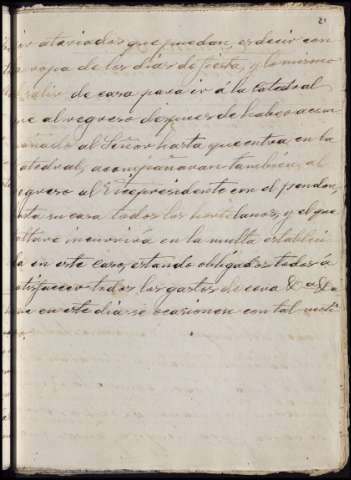 21
ir ataviados que puedan, es decir con
ropa de los dias de fiesta, y lo mismo
salir de casa para ir á la Catedral
ue al regreso despues de haber acom
añado al Señor hasta que entra en la
atedral, acompañaran tambien, al
egreso al Vicepresidente con el pendon,
sta su casa todos los hortelanos, y el que
altare incurrirá en la multa estableci
da en este caso, estando obligados todos á
atisfacer todos los gastos de cera &a &a
ue en este dia se ocasionen con tal moti